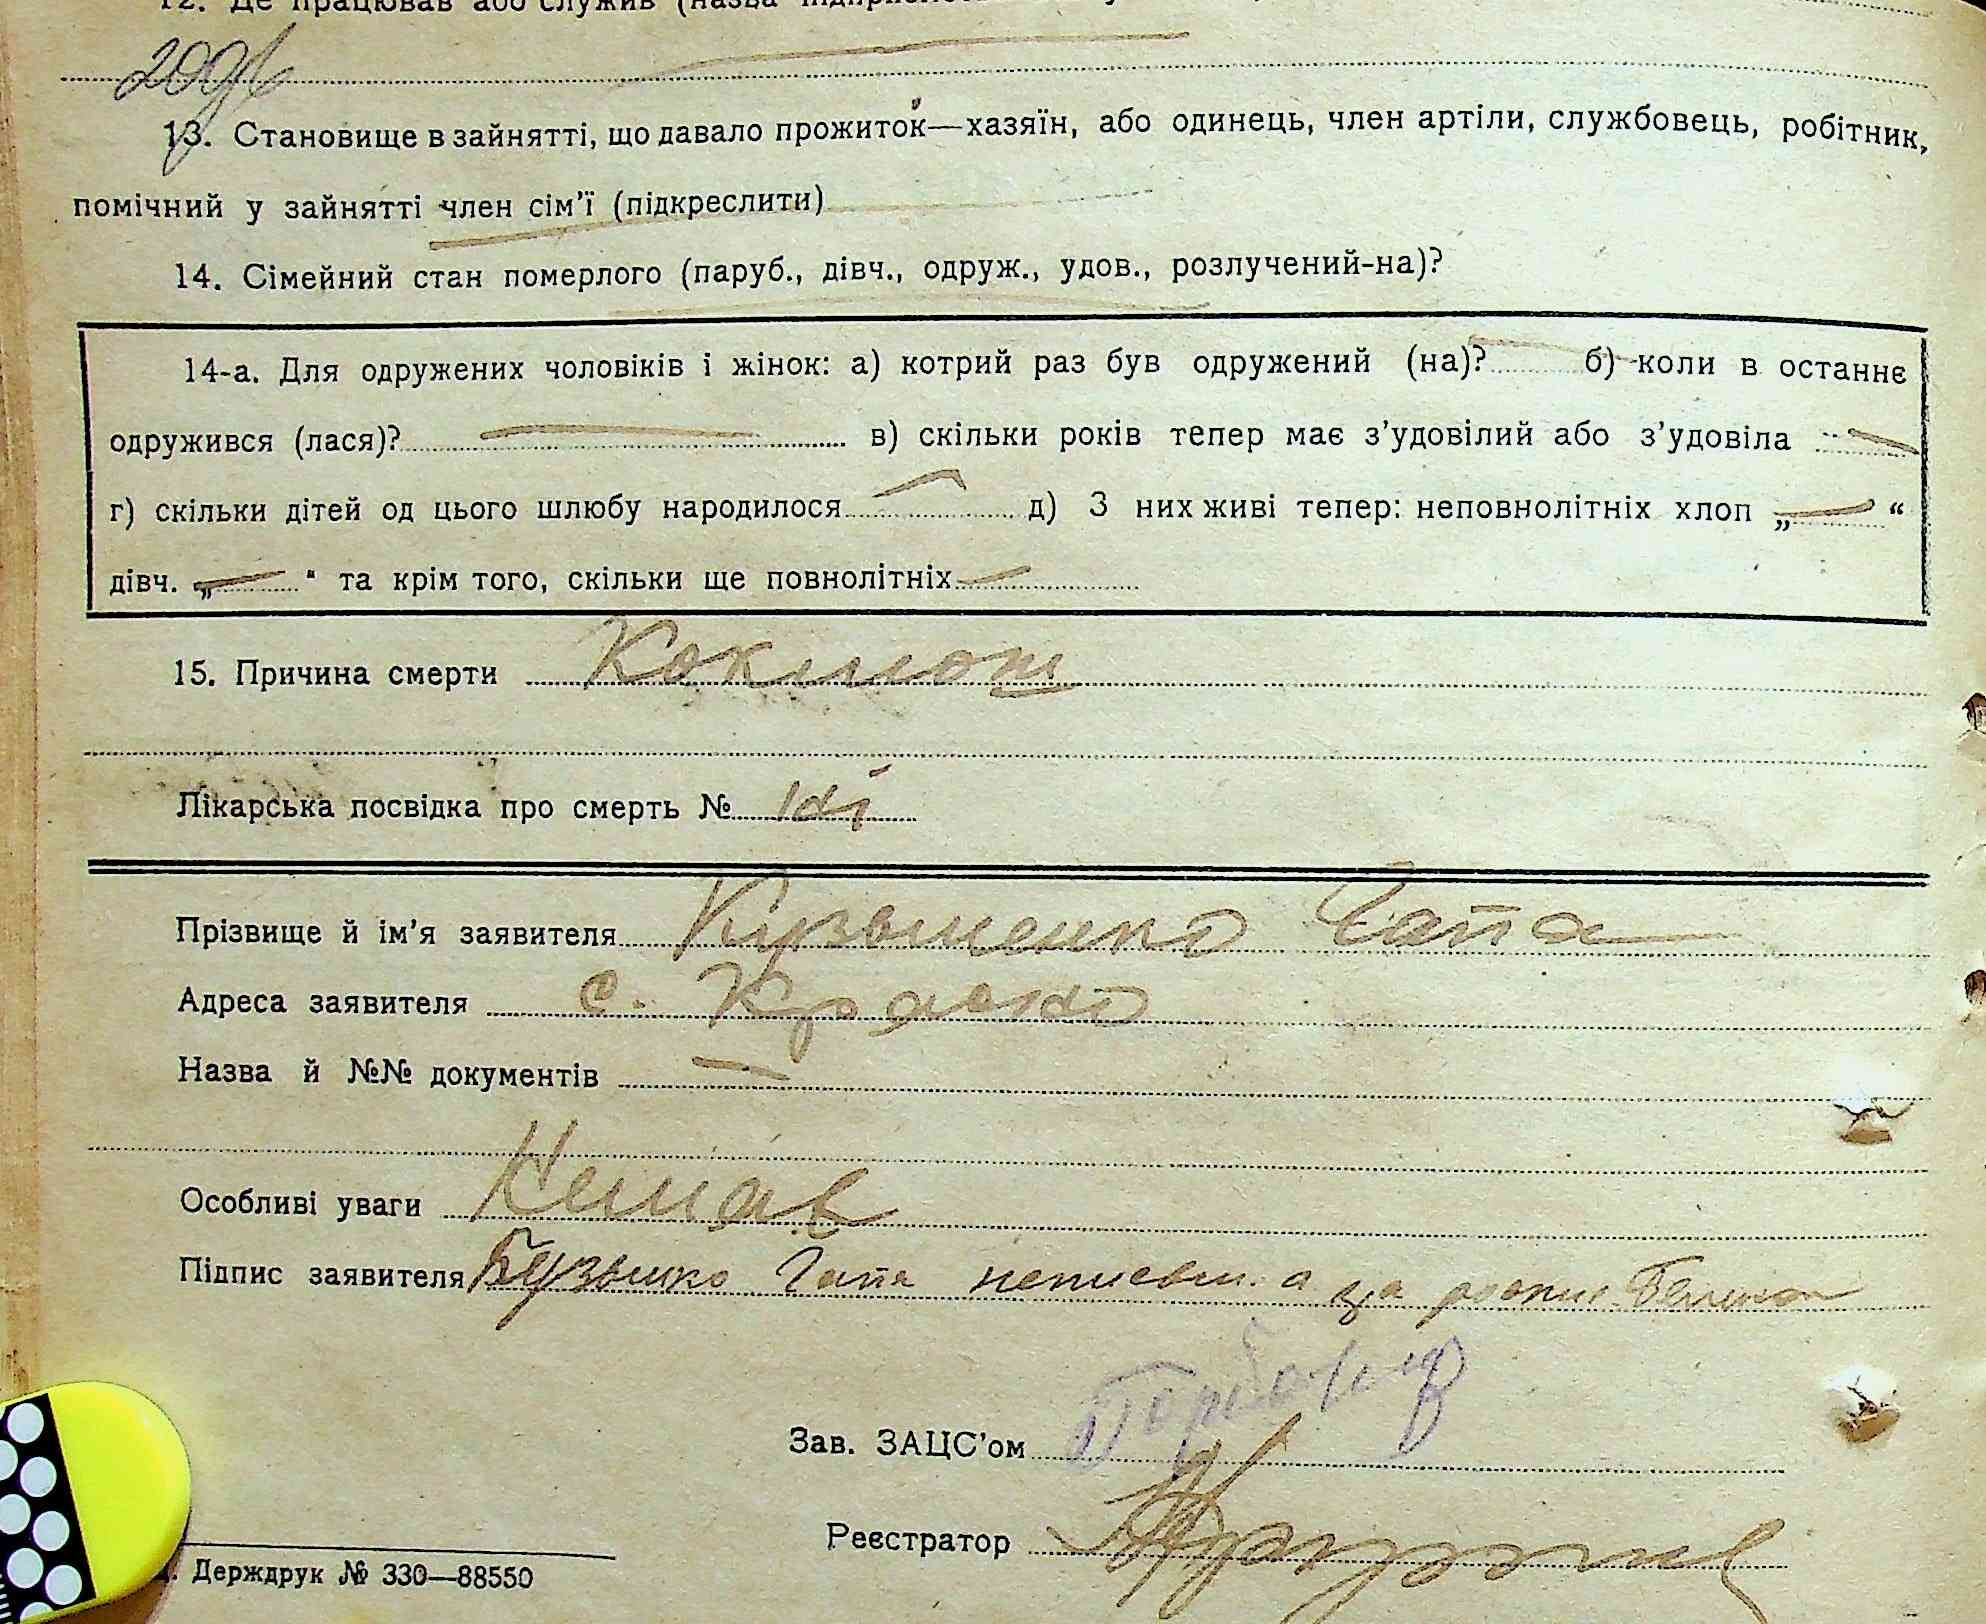 12. Де працював або служив (назва
13. Становище в зайнятті, що давало прожиток—хазяїн, або одинець, член артіли, службовець, робітник,
помічний у зайнятті член сім'ї (підкреслити)
14. Сімейний стан померлого (паруб., дівч., одруж., удов., розлучений-на)?
14-а. Для одружених чоловіків і жінок: а) котрий раз був одружений (на)? б) коли в останнє
одружився (лася)? в) скільки років тепер має з'удовілий або з'удовіла
г) скільки дітей од цього шлюбу народилося д) З них живі тепер: неповнолітніх хлоп „—“
дівч. „—“ та крім того, скільки ще повнолітніх —
15. Причина смерти Коклюш
Лікарська посвідка про смерть №
Прізвище й ім'я заявителя Кузьменко Гапа
Адреса заявителя с.
Назва й №№ документів —
Особливі уваги Немає
Підпис заявителя Гапа а за
Зав. ЗАЦС'ом
Реєстратор
Держдрук № 330—88550